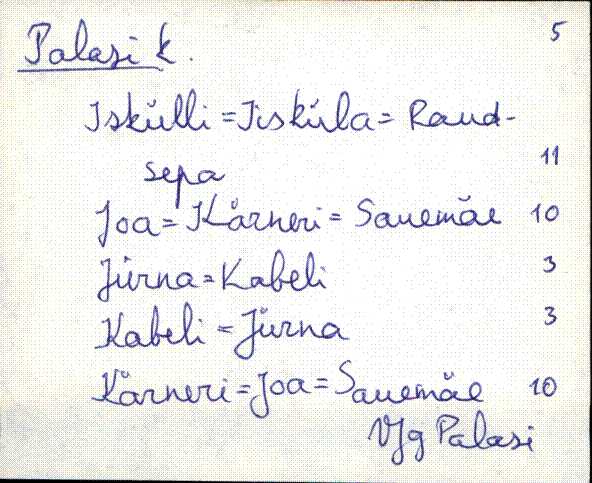 Palasi k. 5
Iskülli = Iisküla = Raud-
sepa 11
Joa = Kärneri = Sauemäe 10
Jürna = Kabeli 3
Kabeli = Jürna 3
Kärneri = Joa = Sauemäe 10
VJg Palasi